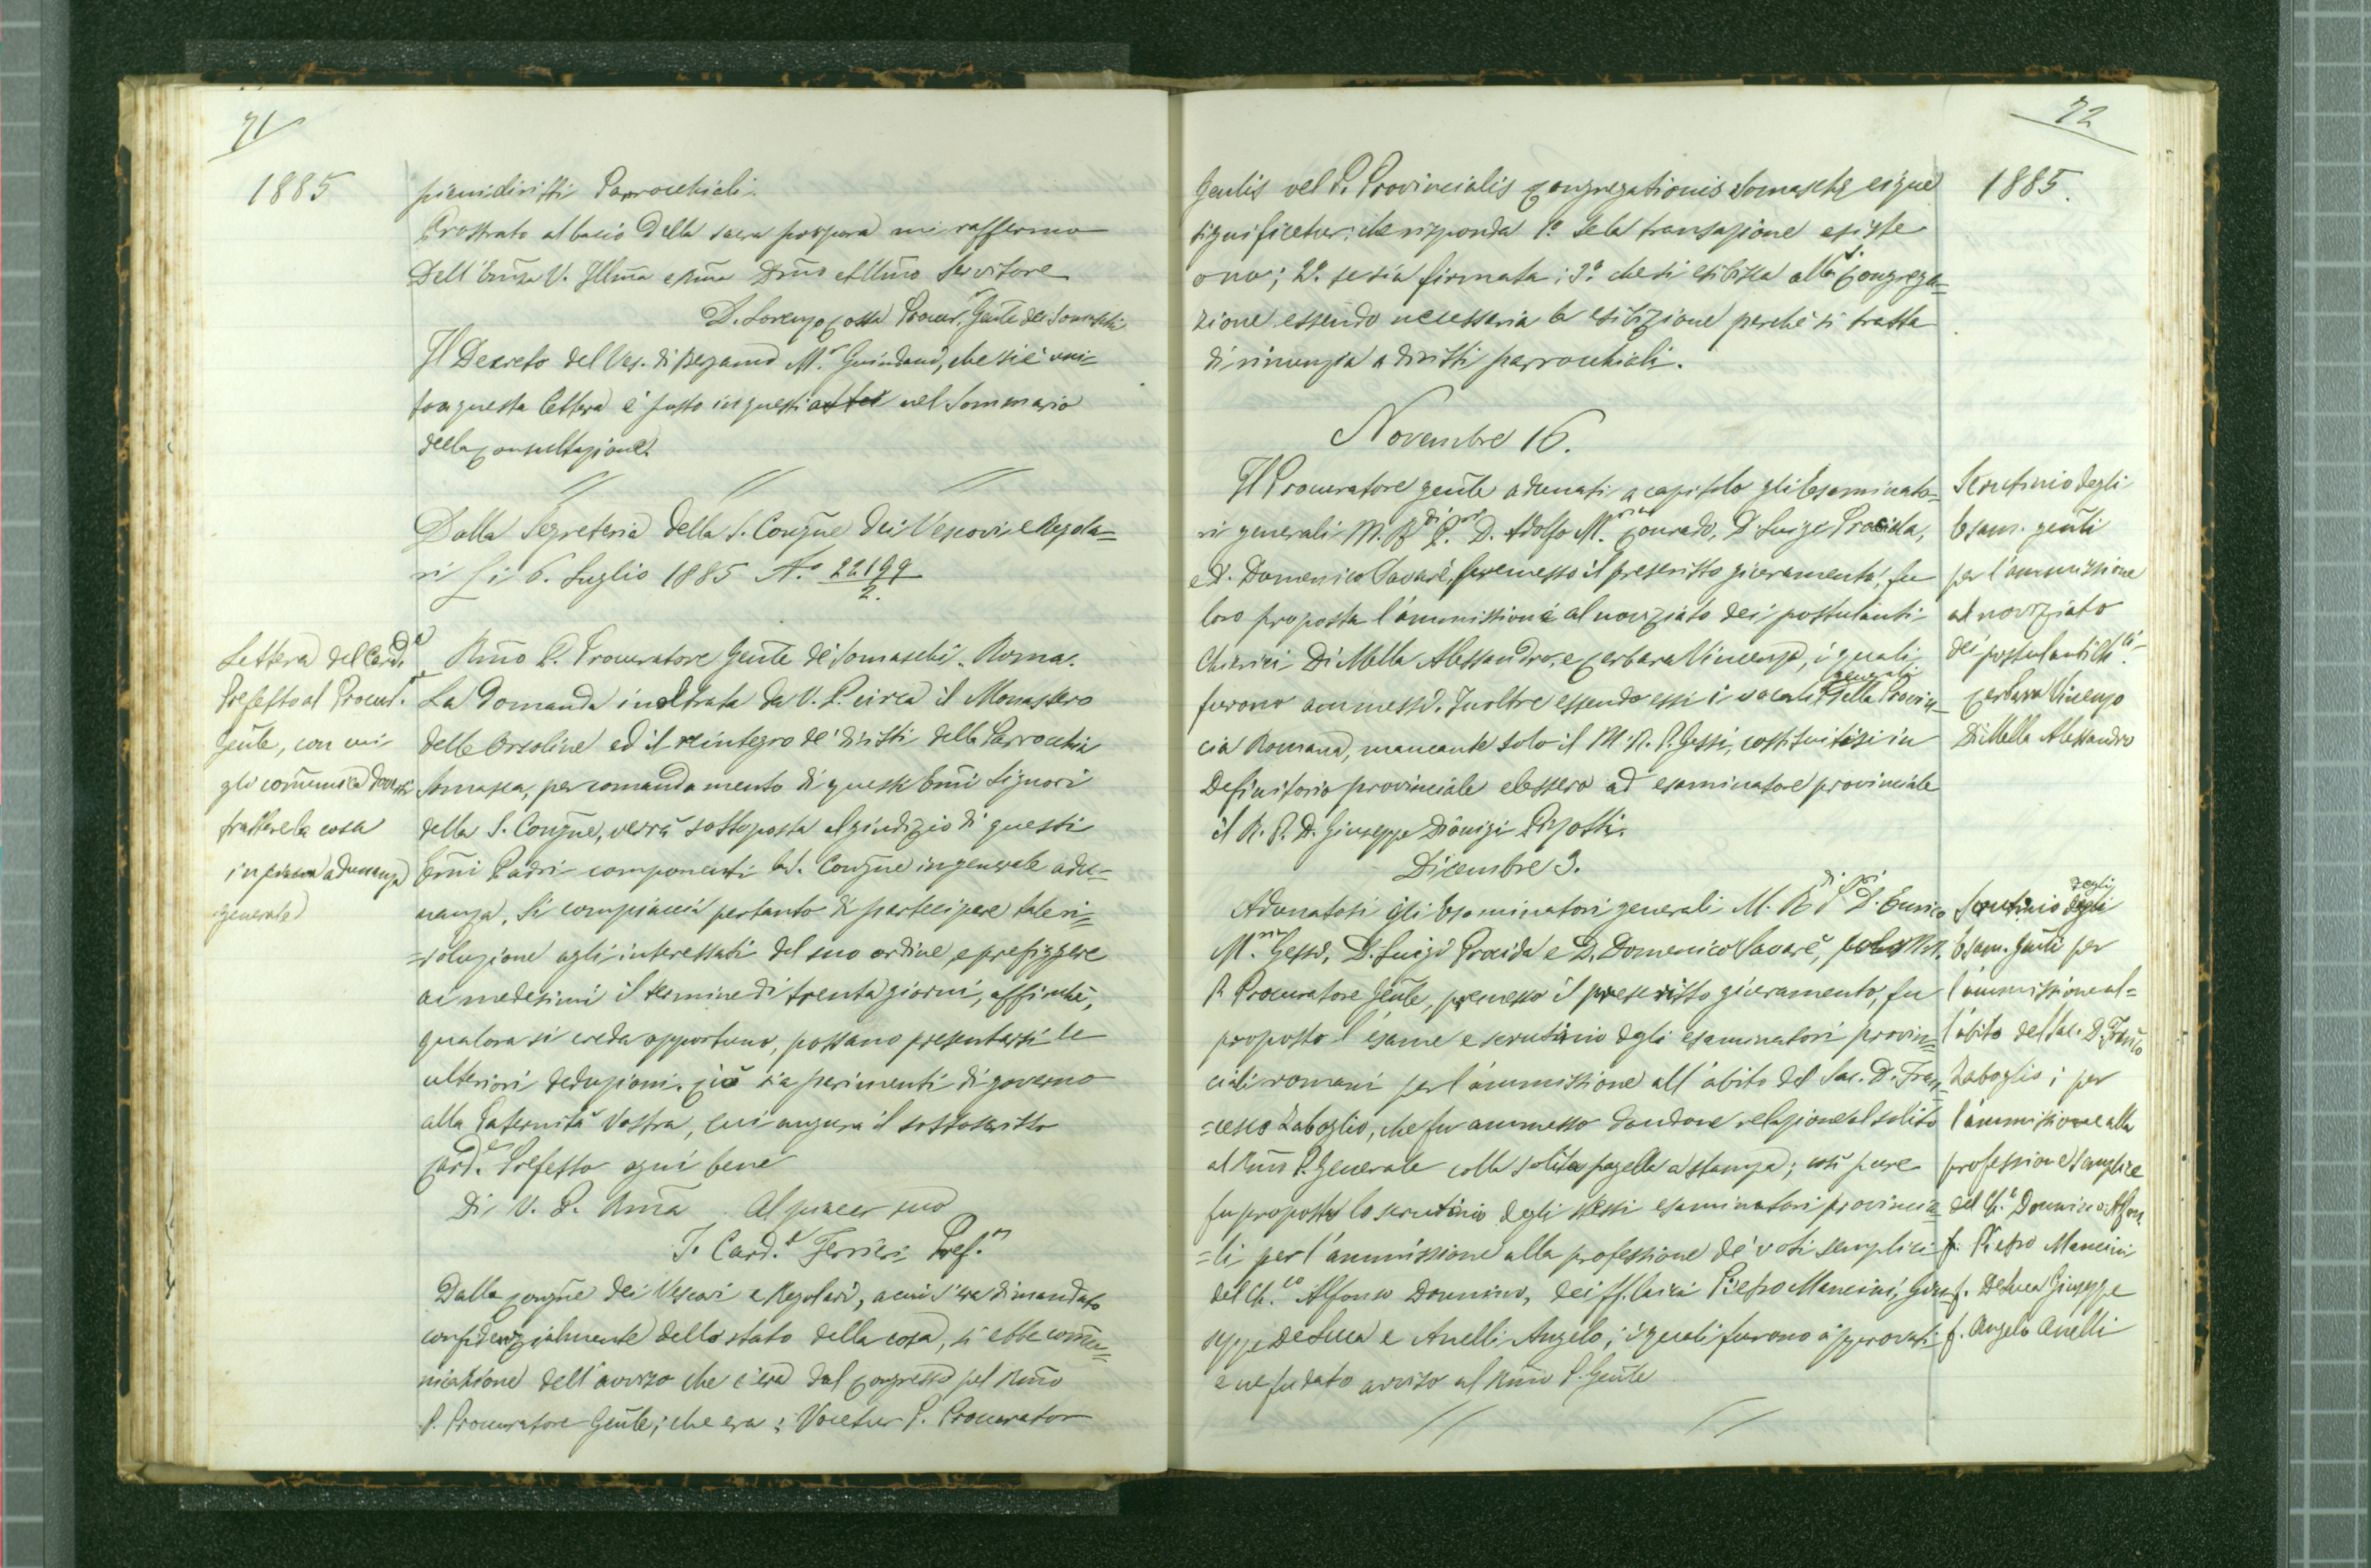 71
1885
pieni diritti Parrocchiali.
Prostrato al bacio della sacra porpora mi raffermo
Dell'Emza V. Illma e Rma Dmo ed Umo Servitore
D. Lorenzo Cossa Procur. Gente dei Somaschi
Il Decreto del Ves. di Bergamo Mr. Guindani, che si è uni=
to a questa lettera è posto in questi atti nel Sommario
della Consultazione.
Dalla Segreteria della S. Congne dei Vescovi e Regola=
ri li 6. Luglio 1885 N.o 22199/2.
Lettera del Card.le
Prefetto al Procur.re
Gente, con cui
gli comunica doversi
trattare la cosa
in piena adunanza
generale
Rmo P. Procuratore Gente de' Somaschi. Roma.
La domanda inoltrata da V. P. circa il Monastero
delle Orsoline ed il reintegro de' diritti della Parrocchia
Somasca, per comandamento di questi Emi Signori
della S. Congne, verrà sottoposta al giudizio di questi
Emi Padri componenti la S. Congne in generale adu=
nanza. Si compiaccia pertanto di partecipare tale ri=
=soluzione agli interessati del suo ordine, e prefiggere
ai medesimi il termine di trenta giorni, affinchè,
qualora si creda opportuno, possano presentarsi le
ulteriori deduzioni. Ciò sia parimenti di governo
alla Paternità Vostra, cui augura il sottoscritto
Card.e Prefetto ogni bene
Di V. P. Rma Al piacer suo
I. Card.l Ferrieri Pref.o
Dalla Congne dei Vescovi e Regolari, a cui s'era dimandato
confidenzialmente dello stato della cosa, si ebbe comu=
nicazione dell'avviso che c'era dal Congresso pel Rmo
P. Procuratore Gente; che era: Vocetur P. Procurator
72
1885.
Gentis vel P. Provincialis Congregationis Somaschae eique
significetur: che risponda 1.o Se la transazione esiste
o no; 2.o se sia firmata; 3.o che si esibisca alla S. Congrega=
zione essendo necessaria la esibizione perchè si tratta
di rinunzia a diritti parrocchiali.
Novembre 16.
Il Procuratore gente adunati a capitolo gli Esaminato=
ri generali M. R.di P.ri D. Adolfo M.ria Conrado, D. Luigi Procida,
e D. Domenico Savarè, premesso il prescritto giuramento, fu
loro proposta l'ammissione al noviziato dei postulanti
Chierici Di Mella Alessandro, e Cerbara Vincenzo, i quali
furono ammessi. Inoltre essendo essi i vocali generali della Provin=
cia Romana, mancante solo il M. R. P. Gessi, costituitisi in
Definitorio provinciale elessero ad esaminatore provinciale
il R. P. D. Giuseppe Dionigi Pizzotti.
Scrutinio degli
Esam. genti
per l'ammissione
al noviziato
dei postulanti Ch.ci
Cerbara Vincenzo
Di Mella Alessandro
Dicembre 3.
Adunatosi gli Esaminatori generali M. R.di P.ri D. Enrico
M.ria Gessi, D. Luigi Procida e D. Domenico Savarè, col M.
R. Procuratore Gente, premesso il prescritto giuramento, fu
proposto l'esame e scrutinio degli esaminatori provin=
ciali romani per l'ammissione all'abito del Sac. D. Fran=
=cesco Zaboglio, che fu ammesso dandone relazione al solito
al Rmo P. Generale colla solita pagella a stampa; così pure
fu proposto lo scrutinio degli stessi esaminatori provincia=
=li per l'ammissione alla professione de' voti semplici
del Ch.co Alfonso Donnino, dei ff. laici Pietro Mancini, Giu=
seppe De Luca e Anelli Angelo; i quali furono approvati
e ne fu dato avviso al Rmo P. Gente
Scrutinio degli
Esam. Genti per
l'ammissione al=
l'abito del Sac. D. Franco
Zaboglio; per
l'ammissione alla
professione semplice
del Ch.o Donnino Alfon.
f. Pietro Mancini
f. De Luca Giuseppe
f. Angelo Anelli